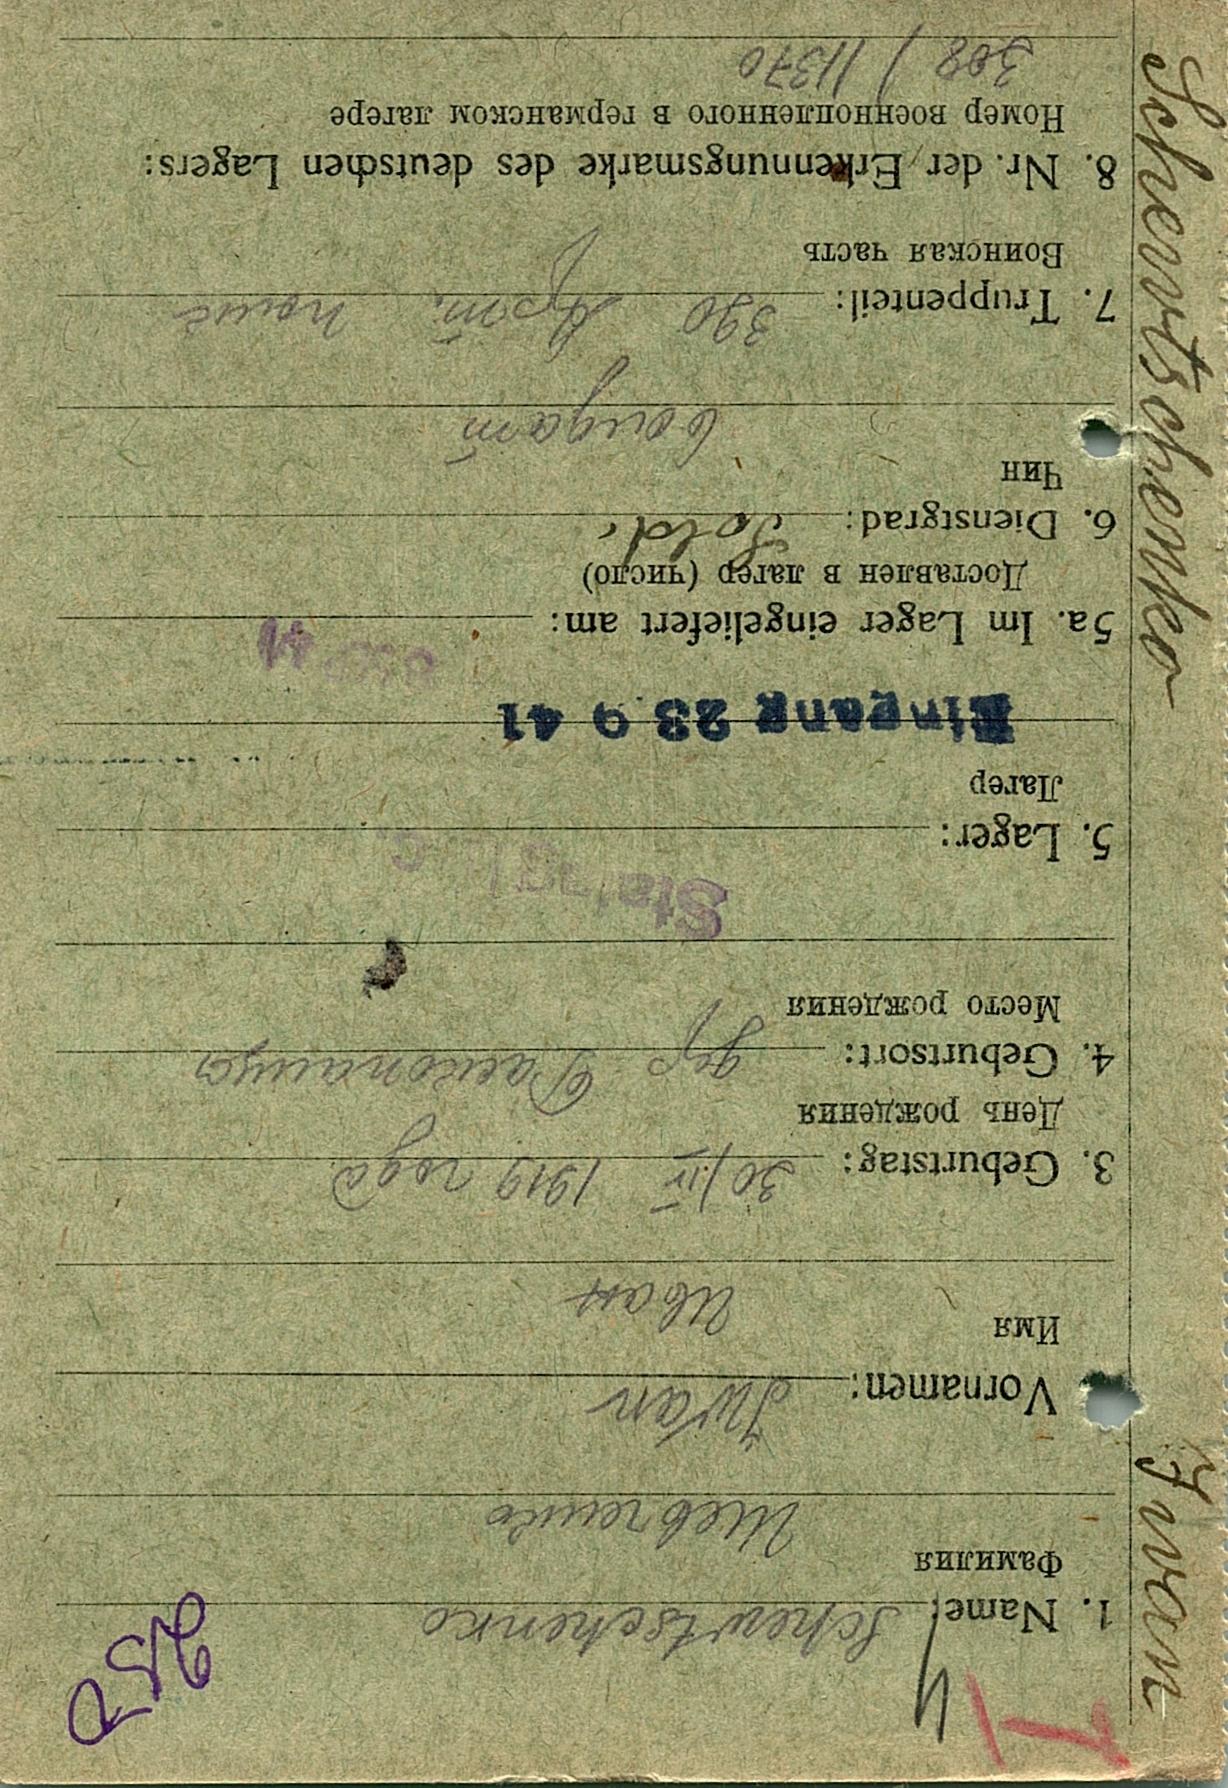 4
1. Name: Schewtschenko
Фамилия
Шевченко
Vornamen: Iwan
Имя
Иван
3. Geburtstag: 30/IV 1919 года
День рождения
4. Geburtsort: дер
Место рождения
Stalag
5. Lager:
Лагер
Eingang 23 9 41
5a. Im Lager eingeliefert am:
Доставлен в лагер (число)
6. Dienstgrad: Sold.
Чин
Солдат
7. Truppenteil: 390 Арт. полк
Воинская часть
8. Nr. der Erkennungsmarke des deutschen Lagers:
Номер военнопленного в германском лагере
308 / 11370
Schewtschenko Iwan